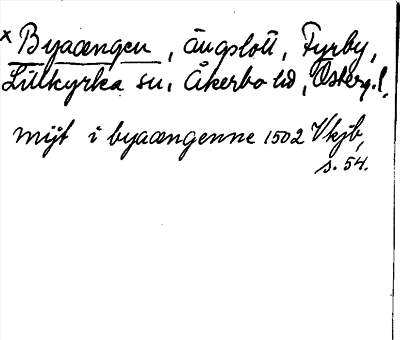 x Byaængen, ängslott, Fyrby,
Lillkyrka sn, Åkerbo hd, Österg. l.
mijt i byaængenne 1502 Vkjb,
s. 54.